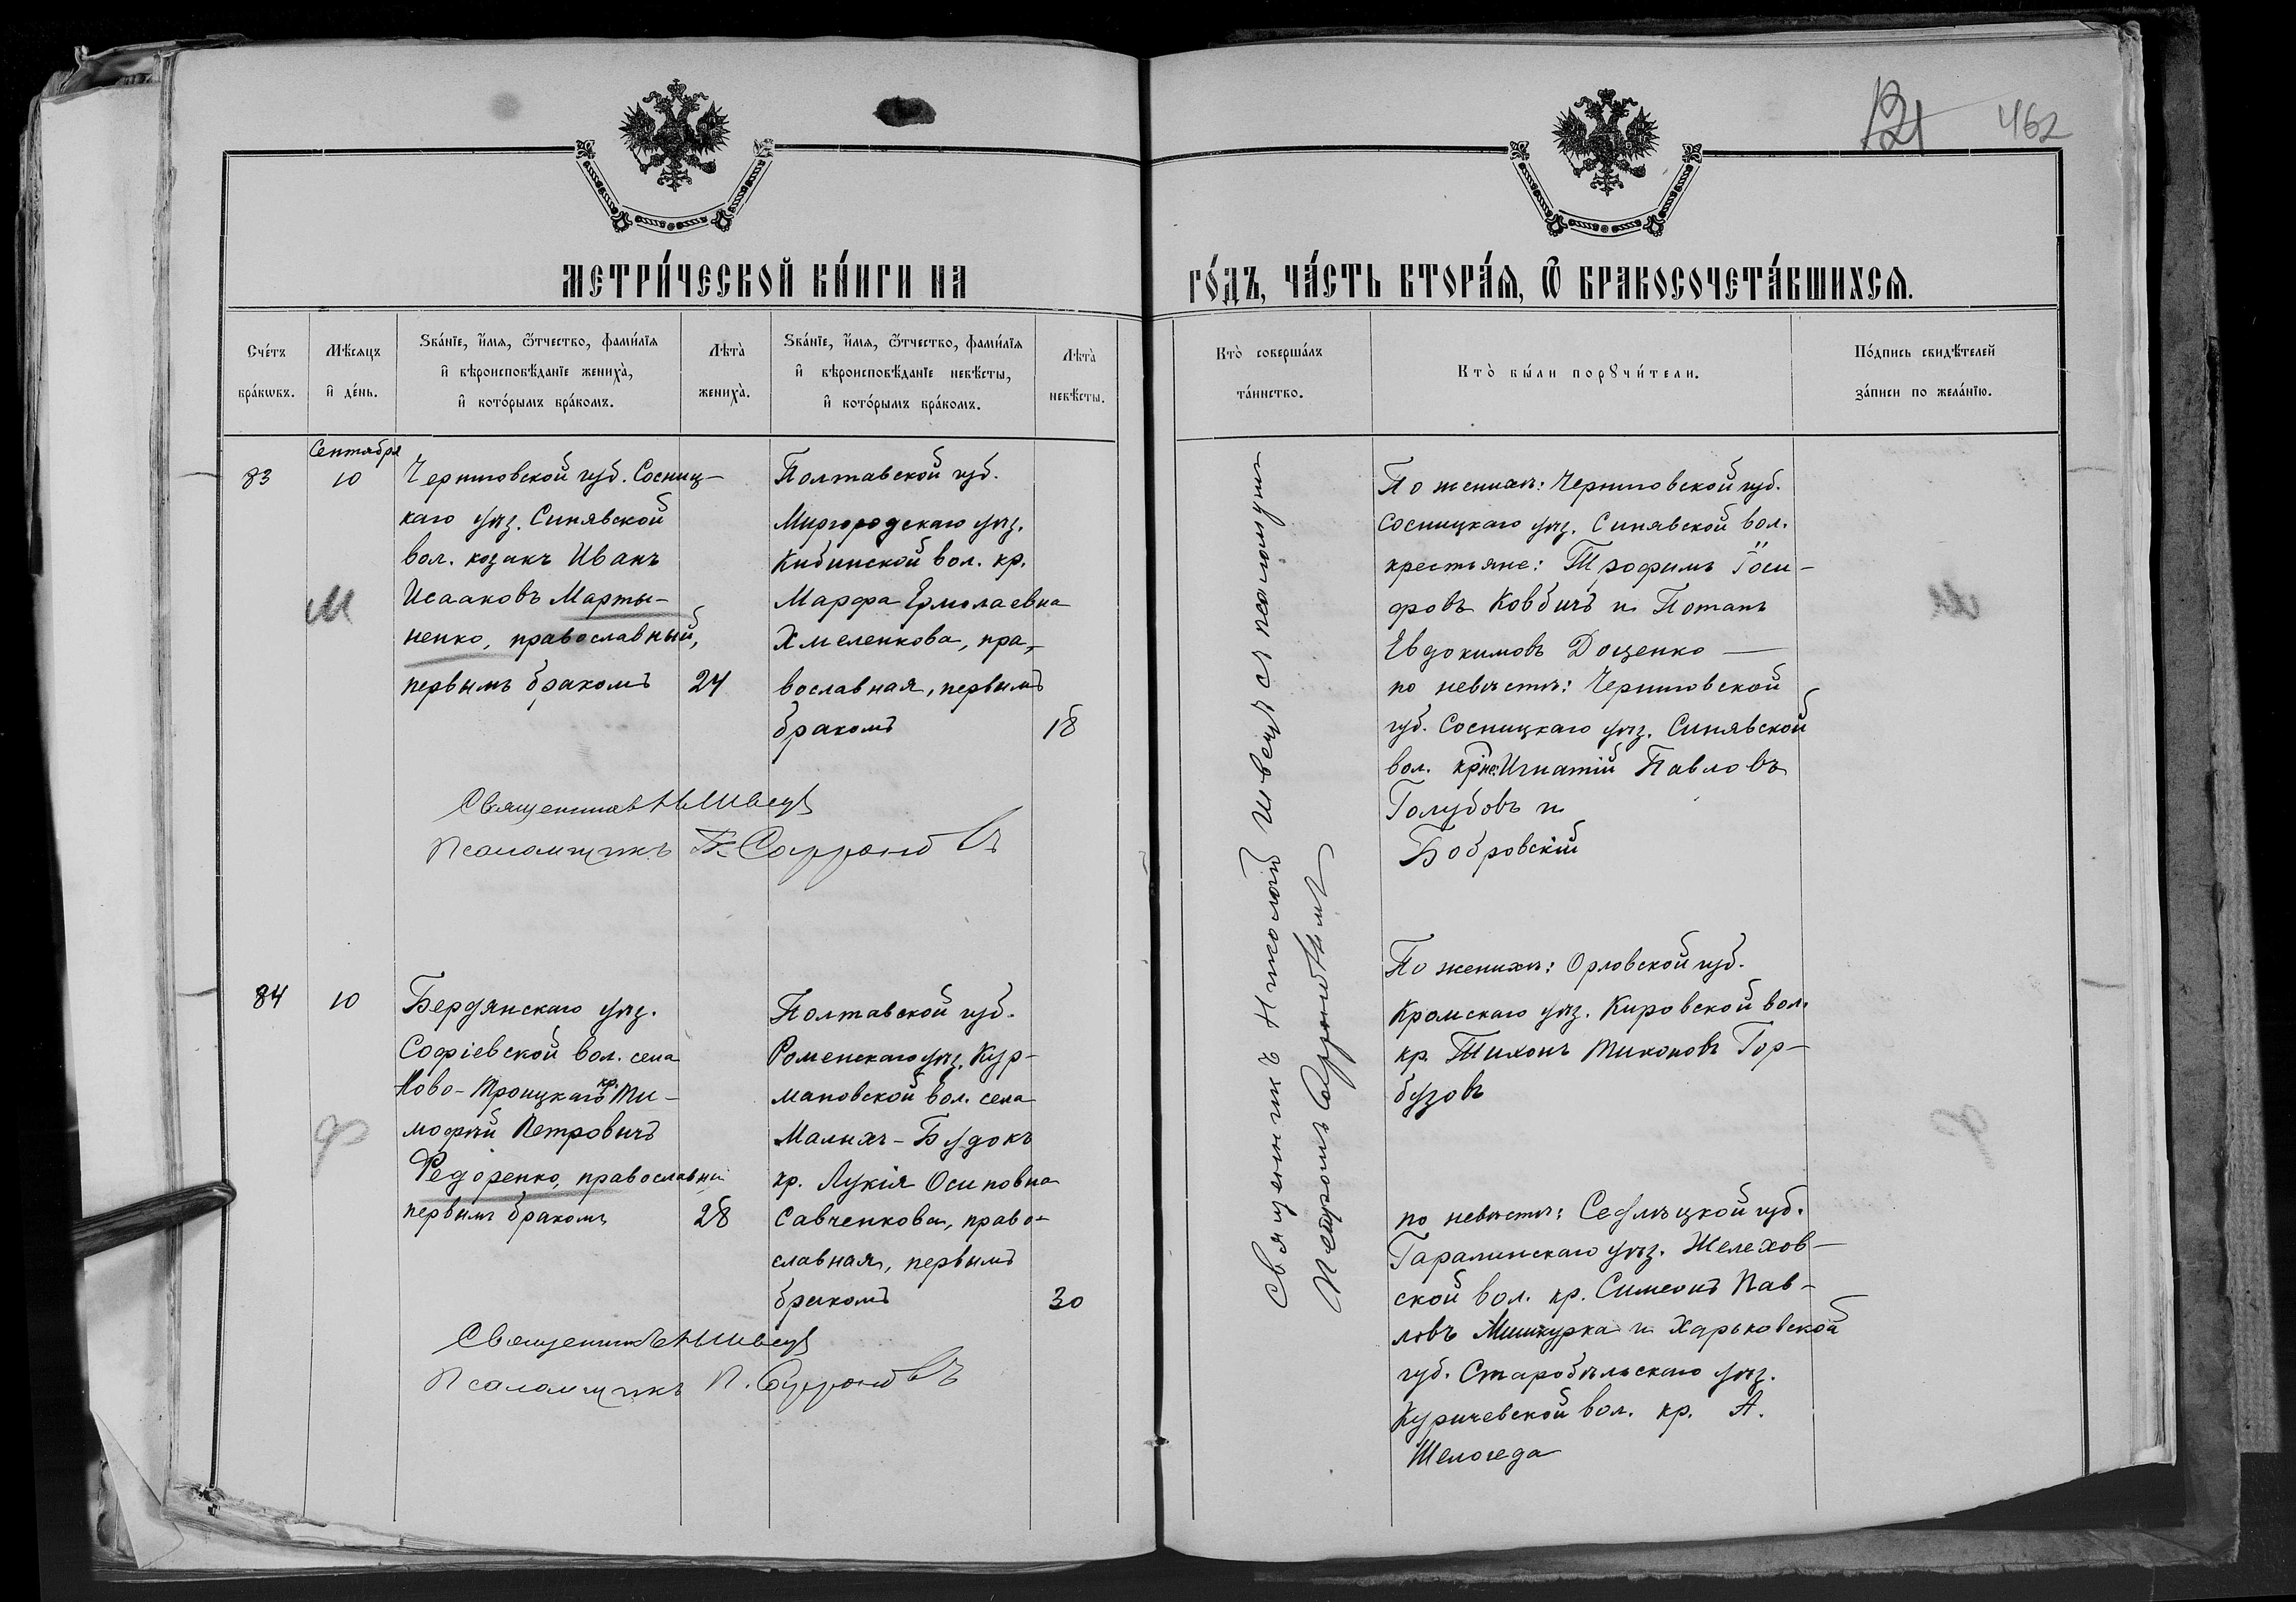 121 462
МЕТРИ́ЧЕСКОЙ КНИ́ГИ НА
ГО́ДЪ, ЧА́СТЬ ВТОРА́Я, Ѿ БРАКОСОЧЕТА́ВШИХСЯ.
Сче́тъ бра́кѡвъ.
Мѣ́сяцъ и҆ де́нь.
Ѕва́нїе, и҆́мя, ѻ҆́тчество, фами́лїя и҆ вѣроисповѣ́данїе жениха̀, и҆ кото́рымъ бра́комъ.
Лѣта̀ жениха̀.
Ѕва́нїе, и҆́мя, ѻ҆́тчество, фами́лїя и҆ вѣроисповѣ́данїе невѣ́сты, и҆ кото́рымъ бра́комъ.
Лѣта̀ невѣ́сты.
Кто̀ соверша́лъ та́инство.
Кто̀ бы́ли порꙋчи́тели.
По́дпись свидѣ́телей за́писи по жела́нїю.
Сентября
83
10
Черниговской губ. Сосниц-
каго уѣз. Синявской
вол. козакъ Иванъ
Исааковъ Марты-
ненко, православный,
первымъ бракомъ 24
М
Полтавской губ.
Миргородскаго уѣз.
Кибинской вол. кр.
Марфа Ермолаевна
Хмеленкова, пра-
вославная, первымъ
бракомъ 18
Священникъ Н Швецъ
Псаломщикъ П. Софроновъ
Священникъ Николай Швецъ съ псаломщикомъ
Петромъ Софроновымъ
По женихѣ: Черниговской губ.
Сосницкаго уѣз. Синявской вол.
крестьяне: Трофимъ Іоси-
фовъ Ковбичъ и Потапъ
Евдокимовъ Доценко —
по невѣстѣ: Черниговской
губ. Сосницкаго уѣз. Синявской
вол. крне: Игнатій Павловъ
Голубовъ и
Бобровскій
84
10
Бердянскаго уѣз.
Софіевской вол. села
Ново-Троицкаго кр. Ти-
мофей Петровичъ
Федоренко, православны
первымъ бракомъ 28
Ф
Полтавской губ.
Роменскаго уѣз. Кур-
мановской вол. села
Малыхъ-Будокъ
кр. Лукія Осиповна
Савченкова, право-
славная, первымъ
бракомъ 30
Священникъ Н Швецъ
Псаломщикъ П. Софроновъ
По женихѣ: Орловской губ.
Кромскаго уѣз. Кировской вол.
кр. Тихонъ Тихоновъ Гор-
бузовъ
по невѣстѣ: Седлецкой губ.
Гаралинскаго уѣз. Желехов-
ской вол. кр. Симеонъ Пав-
ловъ Мишкурка и Харьковской
губ. Старобѣльскаго уѣз.
Куричевской вол. кр. А.
Шелогеда